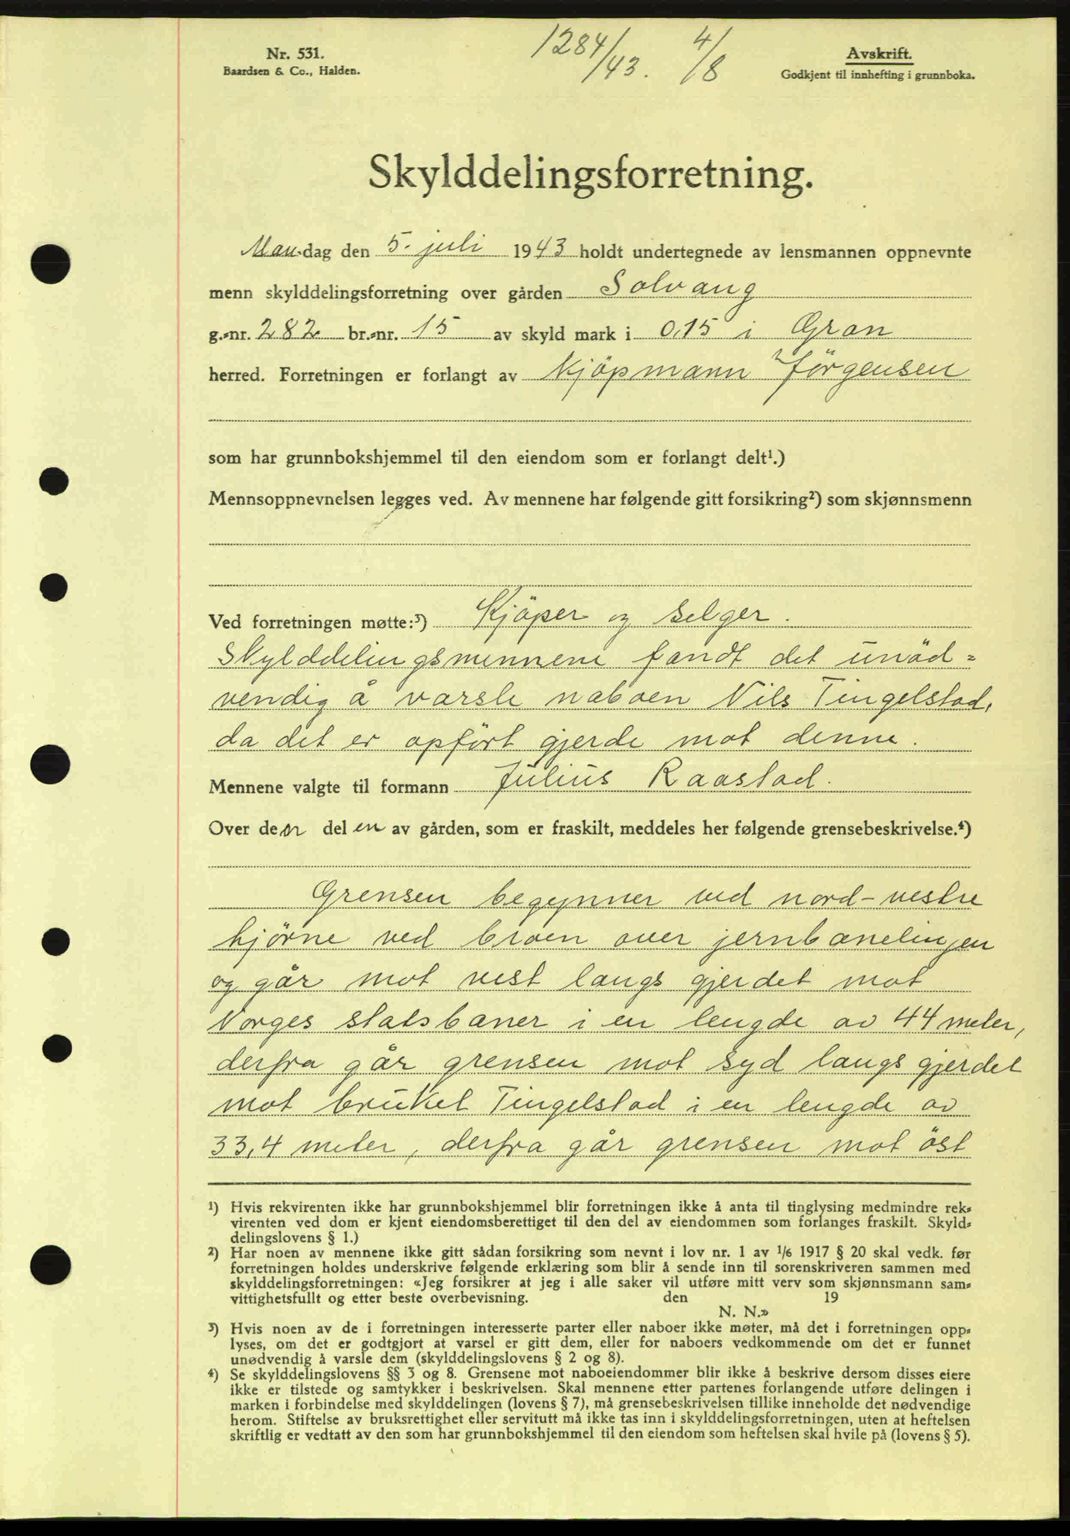 Nr. 531.
Baardsen & Co., Halden.
1284/43. 4/8
Avskrift.
Godkjent til innhefting i grunnboka.
Skylddelingsforretning.
Mandag den 5. juli 1943 holdt undertegnede av lensmannen oppnevnte
menn skylddelingsforretning over gården Solvang
g.-nr. 282 br.-nr. 15 av skyld mark i 0,15 i Gran
herred. Forretningen er forlangt av Kjöpmann Jørgensen
som har grunnbokshjemmel til den eiendom som er forlangt delt¹.)
Mennsoppnevnelsen legges ved. Av mennene har følgende gitt forsikring²) som skjønnsmenn
Ved forretningen møtte:³) Kjöper og selger.
Skylddelingsmennene fandt det unöd=
vendig å varsle naboen Nils Tingelstad,
da det er opført gjerde mot denne.
Mennene valgte til formann Julius Raastad.
Over den del en av gården, som er fraskilt, meddeles her følgende grensebeskrivelse.⁴)
Grensen begynner ved nord-vestre
hjørne ved broen over jernbanelinjen
og går mot vest langs gjerdet mot
Norges statsbaner i en lengde av 44 meter,
derfra går grensen mot syd langs gjerdet
mot bruket Tingelstad i en lengde av
33,4 meter, derfra går grensen mot öst
¹) Hvis rekvirenten ikke har grunnbokshjemmel blir forretningen ikke å anta til tinglysing medmindre rek-
virenten ved dom er kjent eiendomsberettiget til den del av eiendommen som forlanges fraskilt. Skyld-
delingslovens § 1.)
²) Har noen av mennene ikke gitt sådan forsikring som nevnt i lov nr. 1 av 1/6 1917 § 20 skal vedk. før
forretningen holdes underskrive følgende erklæring som blir å sende inn til sorenskriveren sammen med
skylddelingsforretningen: «Jeg forsikrer at jeg i alle saker vil utføre mitt verv som skjønnsmann sam-
vittighetsfullt og etter beste overbevisning. den 19
N. N.»
³) Hvis noen av de i forretningen interesserte parter eller naboer ikke møter, må det i forretningen opp-
lyses, om det er godtgjort at varsel er gitt dem, eller for naboers vedkommende om det er funnet
unødvendig å varsle dem (skylddelingslovens § 2 og 8).
⁴) Se skylddelingslovens §§ 3 og 8. Grensene mot naboeiendommer blir ikke å beskrive dersom disses eiere
ikke er tilstede og samtykker i beskrivelsen. Skal mennene etter partenes forlangende utføre delingen i
marken i forbindelse med skylddelingen (lovens § 7), må grensebeskrivelsen tillike inneholde det nødvendige
herom. Stiftelse av bruksrettighet eller servitutt må ikke tas inn i skylddelingsforretningen, uten at heftelsen
skriftlig er vedtatt av den som har grunnbokshjemmel til den eiendom som heftelsen skal hvile på (lovens § 5).